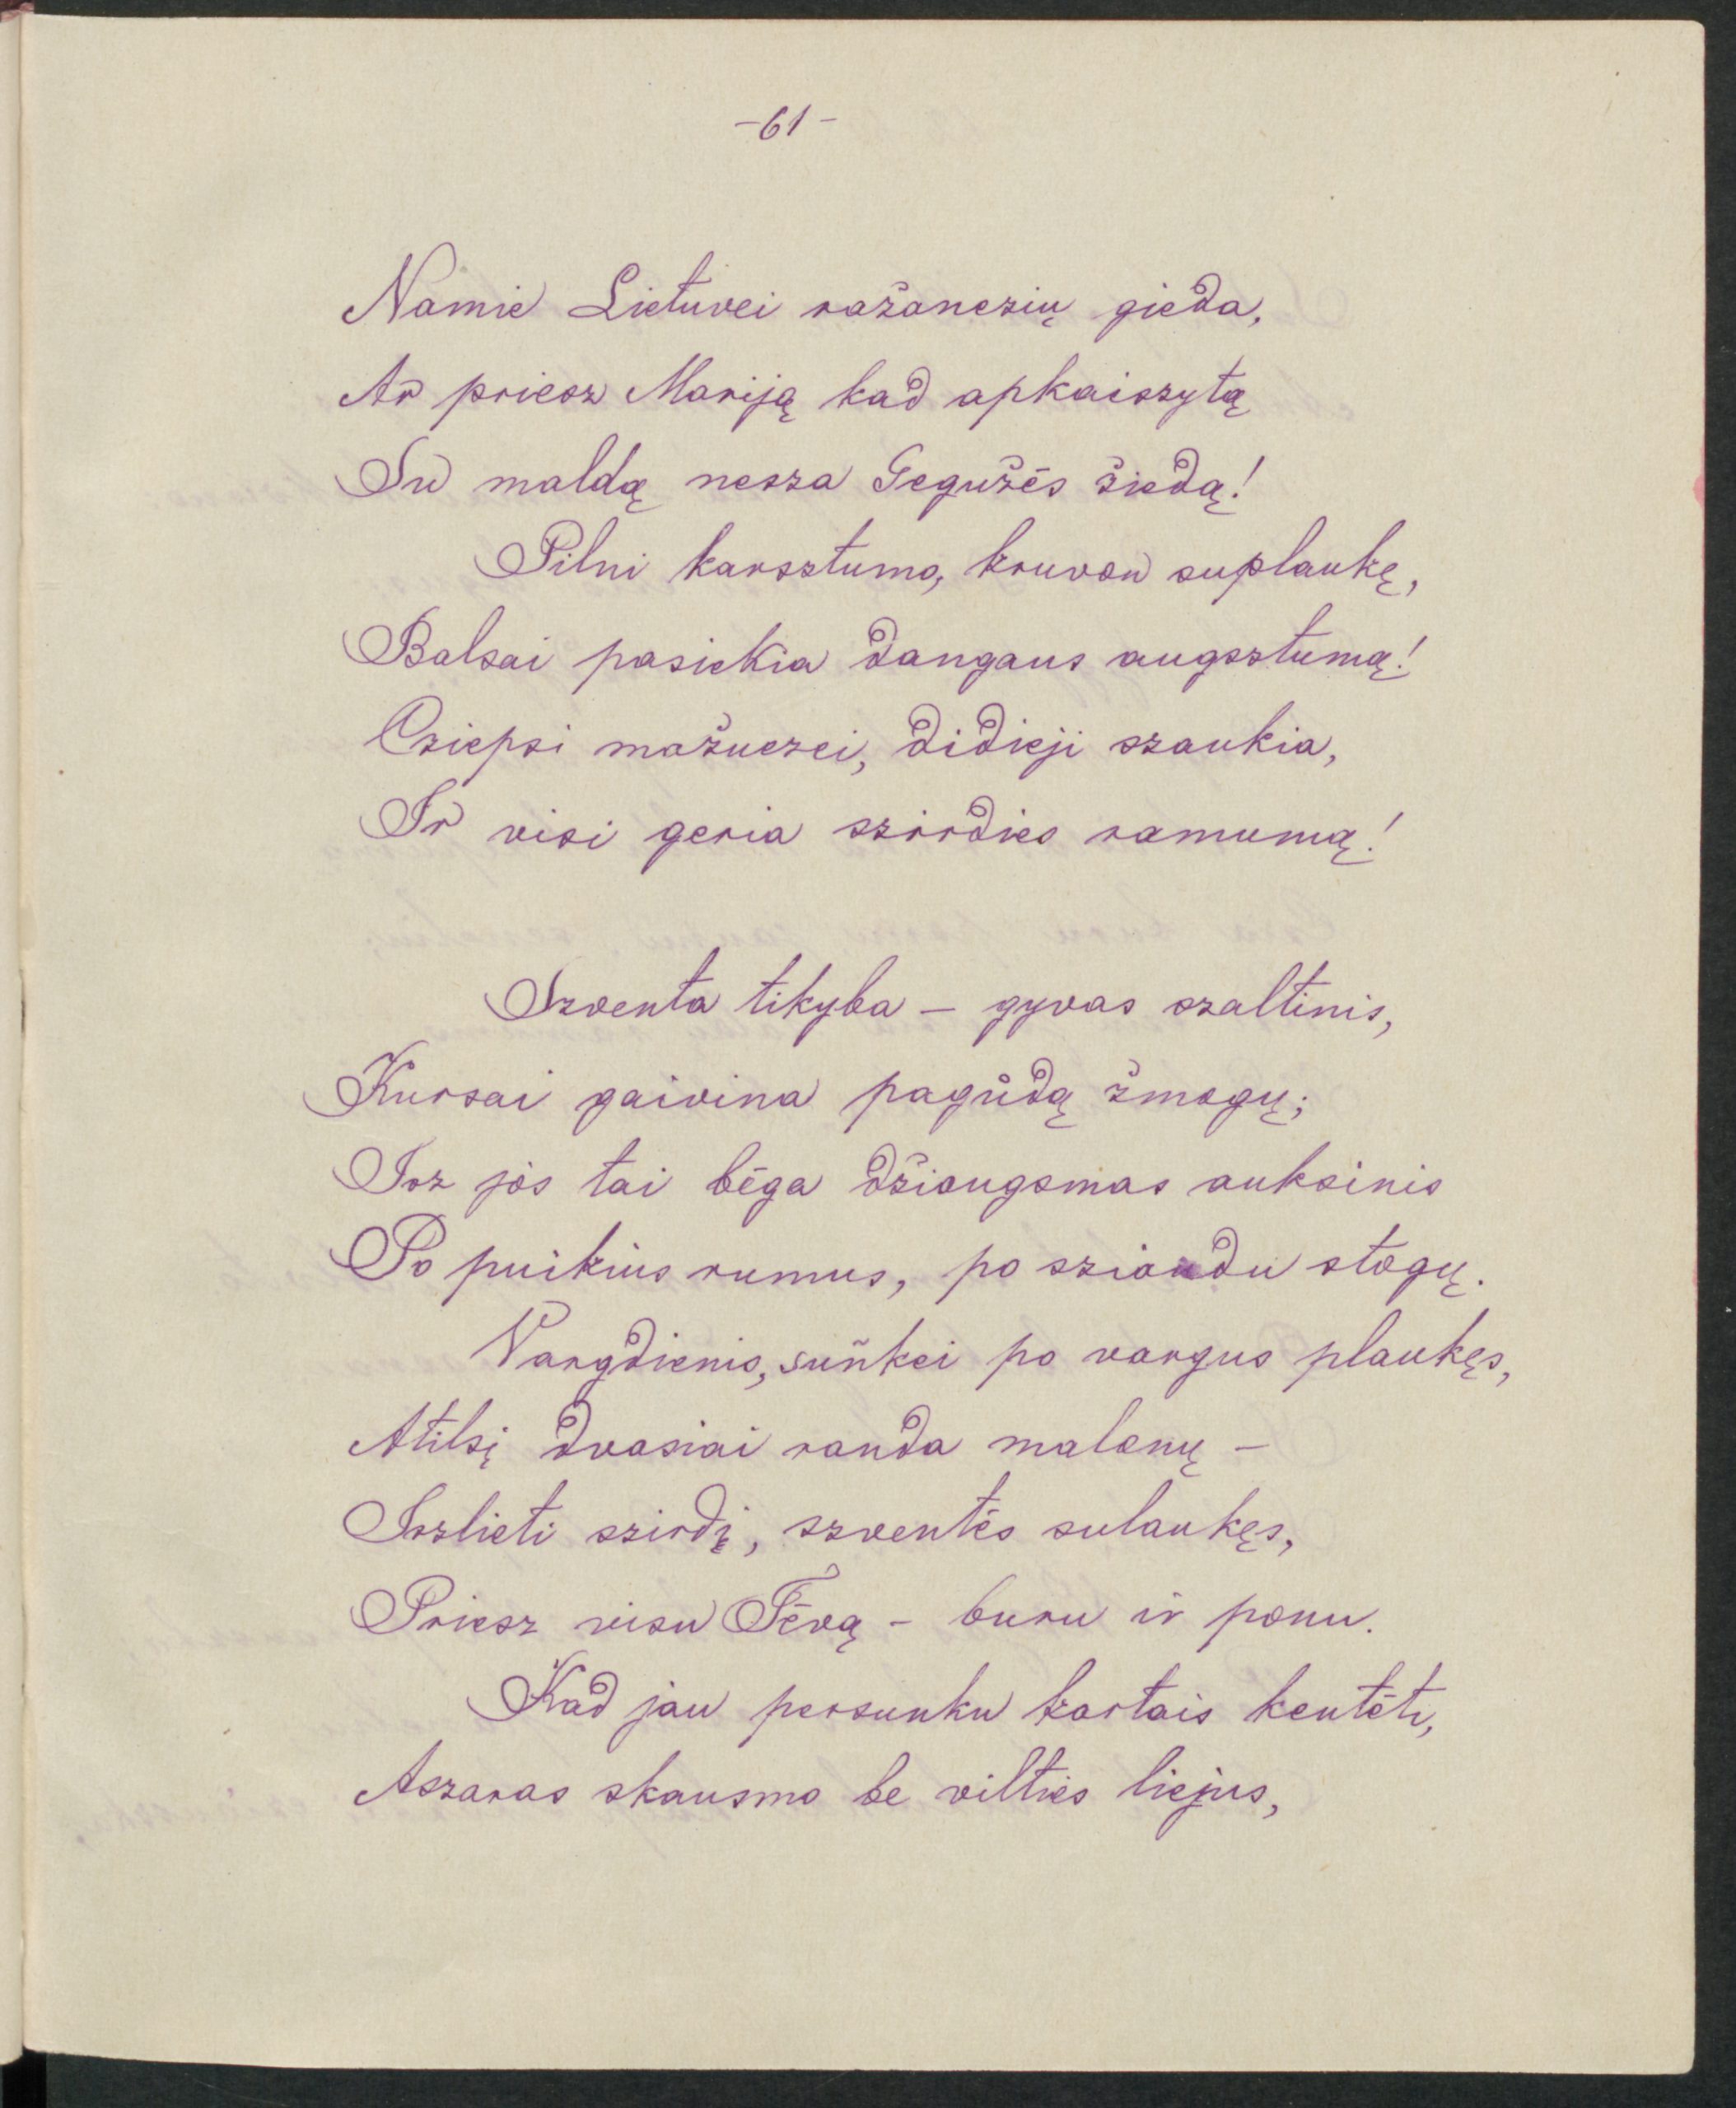 -61-
Namie Lietuvei ražanczių gieda,
Ar priesz Mariją kad apkaiszytą
Su maldą nesza Gegužės žiedą!
Pilni karsztumo, kruvon suplaukę,
Balsai pasiekia dangaus augsztumą!
Cziepsi mažuczei, didieji szaukia,
Ir visi geria szirdies ramumą!
Szventa tikyba – gyvas szaltinis,
Kursai gaivina pagůdą žmogų;
Isz jos tai bėga džiaugsmas auksinis
Po puikius rumus, po sziaudu stogų.
Vargdienis, suñkei po vargus plaukęs,
Atilsį dvasiai randa malonų –
Iszlieti szirdį, szventės sulaukęs,
Priesz visu Tėvą – buru ir ponu.
Kad jau persunku kartais kentėti,
Aszaras skausmo be vilties liejus,